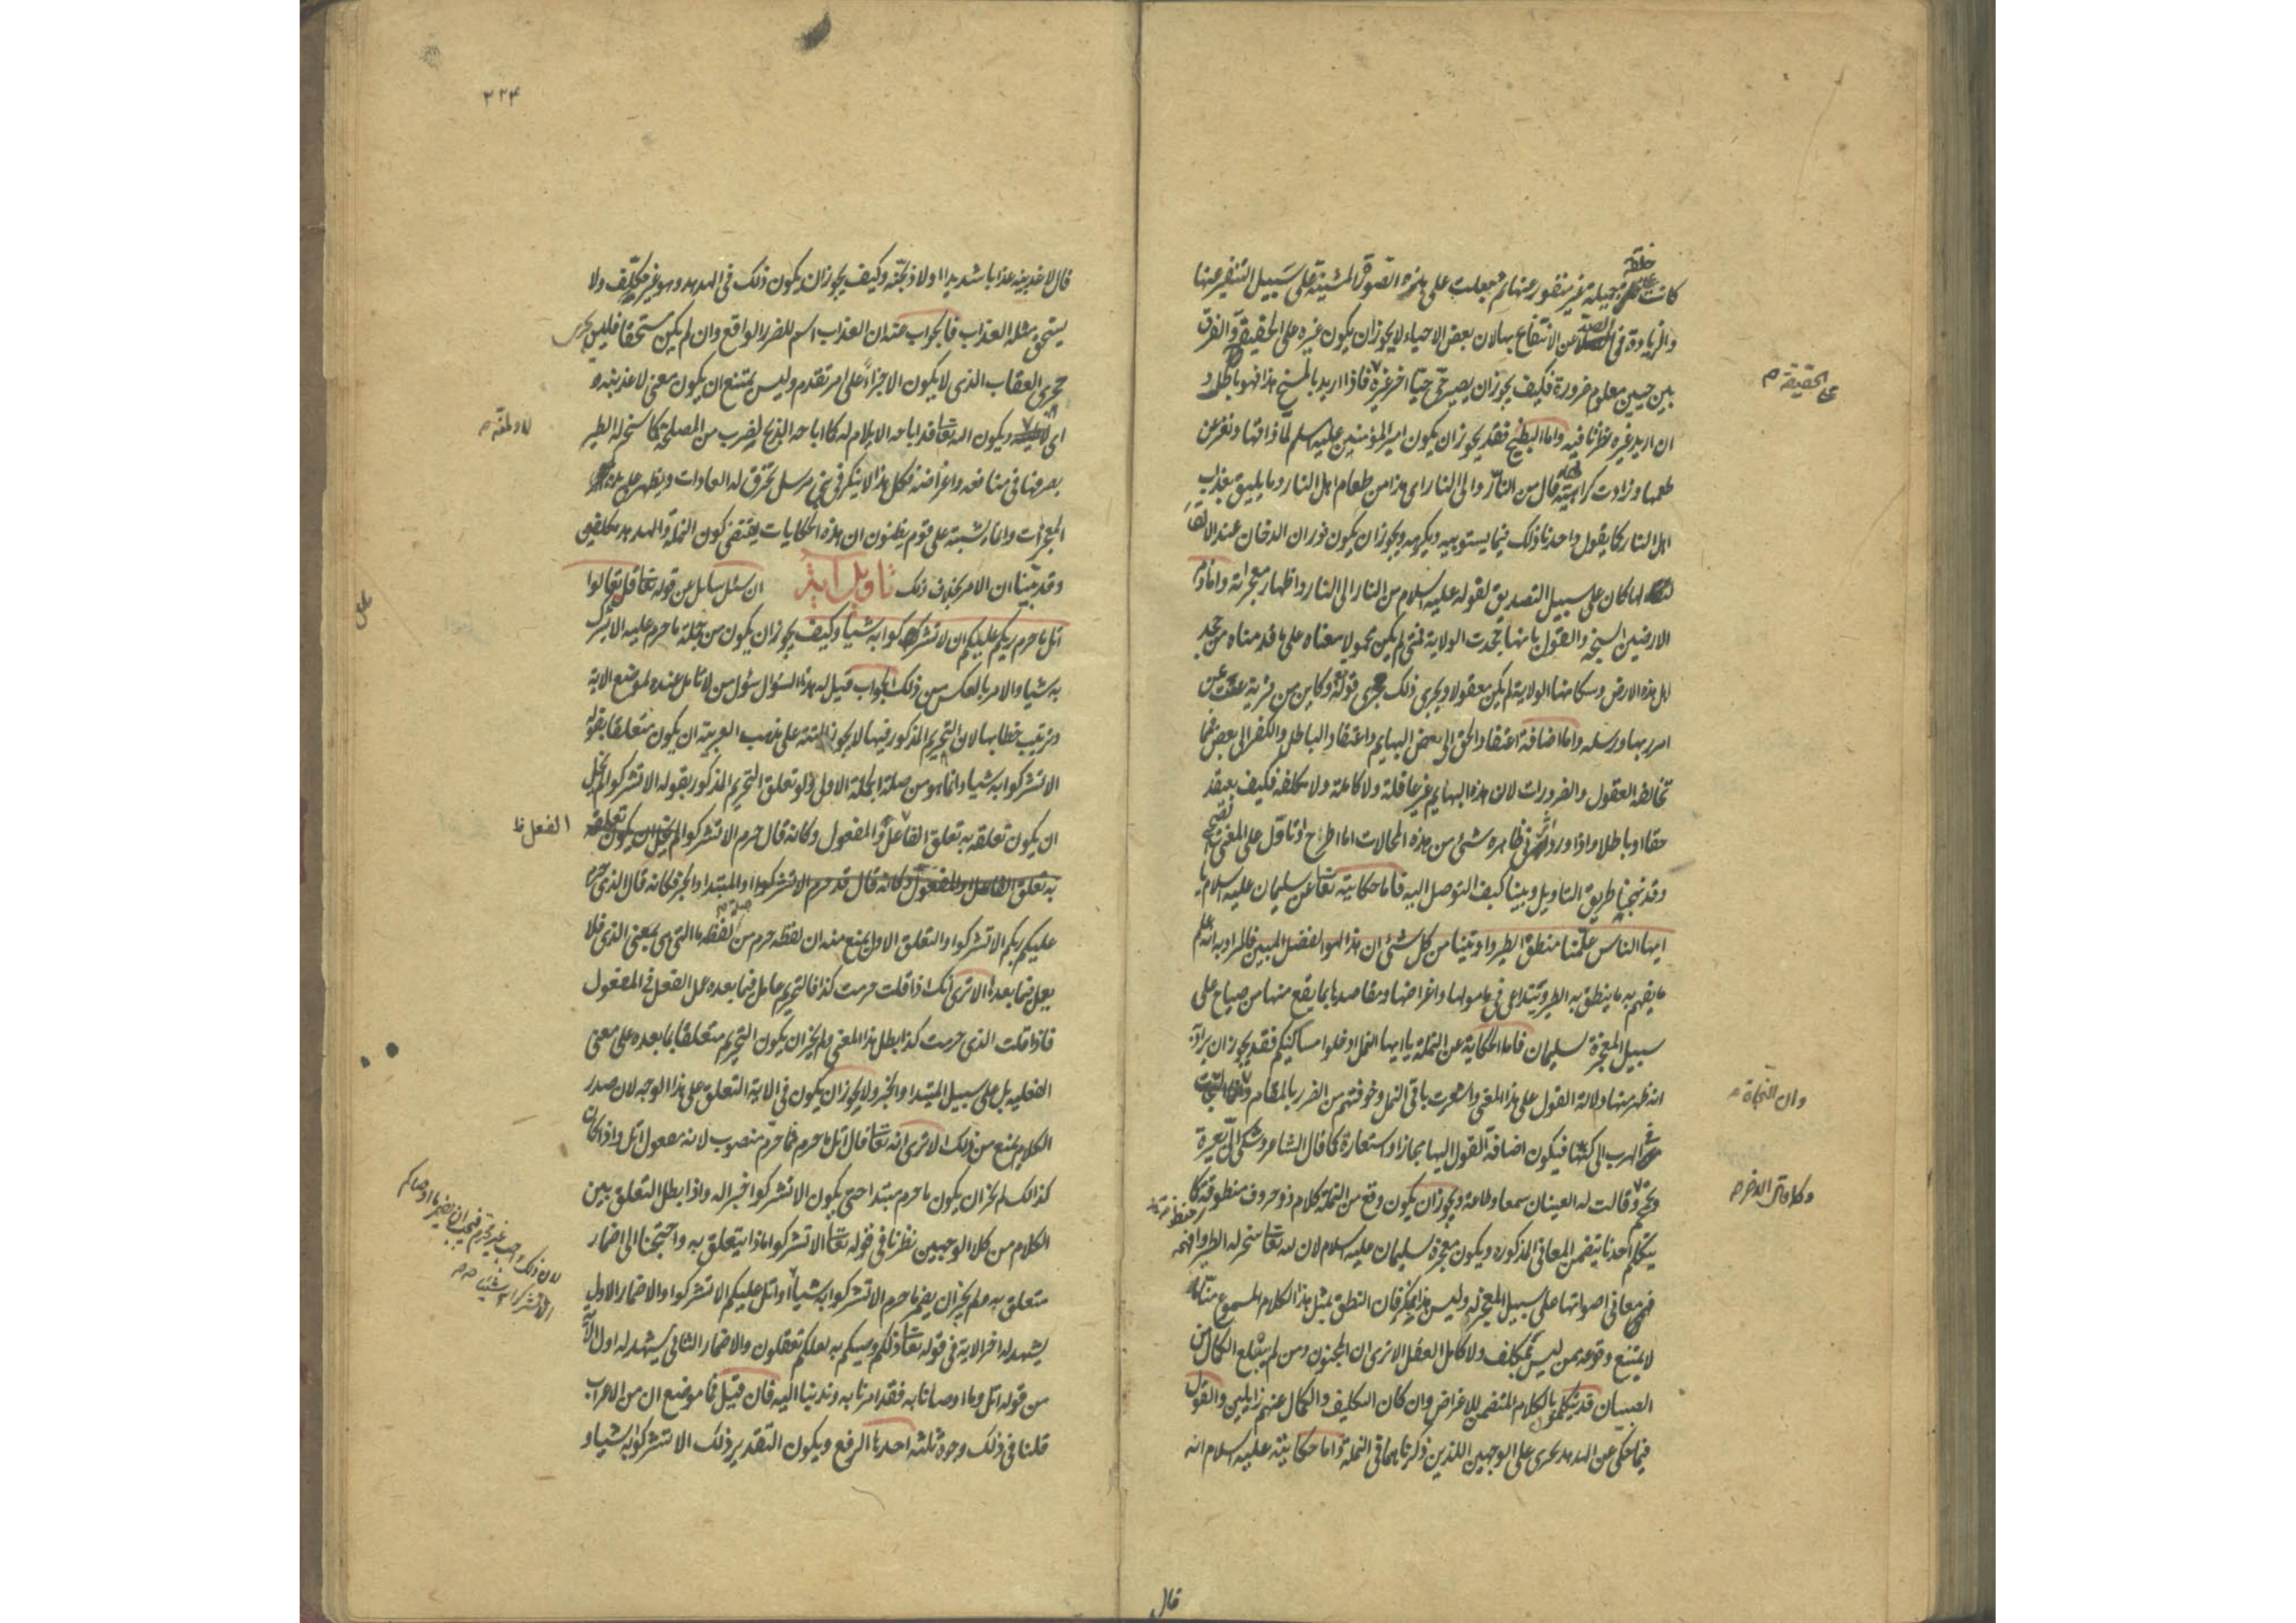 كانت جميلة غير منفور عنها ثم جعلت على هذه الصورة المشينة على سبيل التنفير عنها
خلقة
والزيادة فى الصد عن الانتفاع بها لان بعض الاحياء لا يجوز ان يكون غيره على الحقيقة والفرق
بين حيين معلوم ضرورة فكيف يجوز ان يصير حى حيا اخر غيره فاذا اريد بالمسخ هذا فهو باطل و
على الحقيقة م
ان اريد غيره نظرنا فيه واما البطيخ فقد يجوز ان يكون امير المؤمنين عليه السلم لما ذاقها ونفر عن
طعمها وزادت كراهيته قال من النار والى النار اى هذا من طعام اهل النار وما يليق بعذاب
اهل النار كما يقول واحدنا ذلك فيما يستوبيه ويكرهه ويجوز ان يكون فوران الدخان عند الالقا
لها كان على سبيل التصديق لقوله عليه السلام من النار الى النار واظهار معجزاته واما ذم
الارضين السبخة والقول بانها جحدت الولاية فمتى لم يكن محمولا معناه على ما قدمناه من جحد
اهل هذه الارض وسكانها الولاية لم يكن معقولا ويجرى ذلك مجرى قوله وكاين من قرية عتت عن
امر ربها ورسله واما اضافة اعتقاد الحق الى بعض البهايم واعتقاد الباطل والكفر الى بعض فمما
تخالفه العقول والضرورات لان هذه البهايم غير عاقلة ولا كاملة ولا مكلفة فكيف يعتقد
حقا او باطلا واذا ورد اثر فى ظاهره شئ من هذه المحالات اما اطرح او تاول على المعنى الصحيح
وقد نهجنا طريق التاويل وبينا كيف التوصل اليه فاما حكايته تعالى عن سليمان عليه السلام يا
ايها الناس علمنا منطق الطير واوتينا من كل شئ ان هذا لهو الفضل المبين فالمراد به انه علم
ما يفهم به ما ينطق به الطير وتتداعى فى اصواتها واغراضها ومقاصدها بما يقع منها من صياح على
سبيل المعجزة لسليمان فاما الحكاية عن النملة يا ايها النمل ادخلوا مساكنكم فقد يجوز ان يراد به
انه ظهر منها دلالة القول على هذا المعنى واشعرت باقى النمل وخوفتهم من الضرر بالمقام
وان النجاة م
فى الهرب الى فيكون اضافة القول اليها مجازا واستعارة كما قال الشاعر وشكى الى بعبرة
وتحمحم وقالت له العينان سمعا وطاعة ويجوز ان يكون وقع من النملة كلام ذو حروف منظومة كما
وكما قال الاخر م
يتكلم احدنا يتضمن المعانى المذكوره ويكون معجزة لسليمان عليه السلام لان الله تعالى سخر له الطير وافهمه
معانى اصواتها على سبيل المعجز له وليس هذا بمنكر فان النطق بمثل هذا الكلام المسموع منا
لا يمتنع وقوعه ممن ليس بمكلف ولا كامل العقل الا ترى ان المجنون ومن لم يبلغ الكمال من
الصبيان قد يتكلمون بالكلام المتضمن للاغراض وان كان التكليف والكمال عنهم زايلين والقول
فيما حكى عن الهدهد يجرى على الوجهين اللذين ذكرناهما فى النملة واما حكايته عليه السلام انه
قال
٢٢۴
قال لاعذبنه عذابا شديدا او لاذبحنه وكيف يجوز ان يكون ذلك فى الهدهد وهو غير مكلف ولا
يستحق مثله العذاب فالجواب عنه ان العذاب اسم للضرر الواقع وان لم يكن مستحقا فليس يجرى
مجرى العقاب الذى لا يكون الا جزاءً على امر تقدم وليس يمتنع ان يكون معنى لاعذبنه و
اى ويكون الله تعالى قد اباحه الايلام له كما اباحه الذبح لضرب من المصلحة كما سخر له الطير
لاولمنه م
يصرفها فى منافعه واغراضه فكل هذا لا ينكر فى نبى مرسل تخرق له العادات ويظهر على يده
المعجزات وانما يشتبه على قوم يظنون ان هذه الحكايات يقتضى كون النملة والهدهد مكلفين
وقد بينا ان الامر بخلاف ذلك تاويل آية ان سئل سايل عن قوله تعالى قل تعالوا
اتل ما حرم ربكم عليكم ان لا تشركوا به شيئا وكيف يجوز ان يكون من جملة ما حرم عليه الا يشرك
به شيئا والامر بالعكس من ذلك الجواب قيل له هذا السؤال سئول من لا تامل عنده لموضع الاية
وترتيب خطابها لان التحريم المذكور فيها لا يجوز البتة على مذهب العربية ان يكون متعلقا بقوله
الا تشركوا به شيئا وانما هو من صلة الجملة الاولى ولو تعلق التحريم المذكور بقوله الا تشركوا لم يخل
ان يكون تعلقه به تعلق الفاعل والمفعول وكانه قال حرم الا تشركوا
الفعل ظ
به تعلق الفاعل او المفعول وكانه قال قد حرم الا تشركوا او المبتدا والخبر فكانه قال الذى حرم
عليكم ربكم الا تشركوا والتعلق الاول يمنع منه ان لفظه حرم من صلة لفظه ما التى هى بمعنى الذى فلا
يعمل فيما بعدها الا ترى انك اذا قلت حرمت كذا فالتحريم عامل فيما بعده عمل الفعل فى المفعول
فاذا قلت الذى حرمت كذا بطل هذا المعنى ولم يجز ان يكون التحريم متعلقا بما بعده على معنى
الفعليه بل على سبيل المبتدا والخبر ولا يجوز ان يكون فى الاية التعلق على هذا الوجه لان صدر
الكلام يمنع من ذلك الا ترى انه تعالى قال اتل ما حرم فما حرم منصوب لانه مفعول اتل واذا كان
كذلك لم يجز ان يكون ما حرم مبتدا حتى يكون الا تشركوا خبرا له واذا بطل التعلق بين
الكلام من كلا الوجهين نظرنا فى قوله تعالى الا تشركوا ما ذا يتعلق به واحتجنا الى اضمار
متعلق به ولم يجز ان يضمر ما حرم الا تشركوا به شيئا او اتل عليكم الا تشركوا والاضمار الاول
لان ذلك واجب غير محرم فيجب ان يضمر ما اوصاكم
الا تشركوا به شيئا م م
يشهد له اخر الاية فى قوله تعالى ذلكم وصيكم به لعلكم تعقلون والاضمار الثانى يشهد له اول الآية
من قوله اتل وما اوصانا به فقد امرنا به وندبنا اليه فان قيل فما موضع ان من الاعراب
قلنا فى ذلك وجوه ثلثه احدها الرفع ويكون التقدير ذلك الا تشركوا به شيئا و